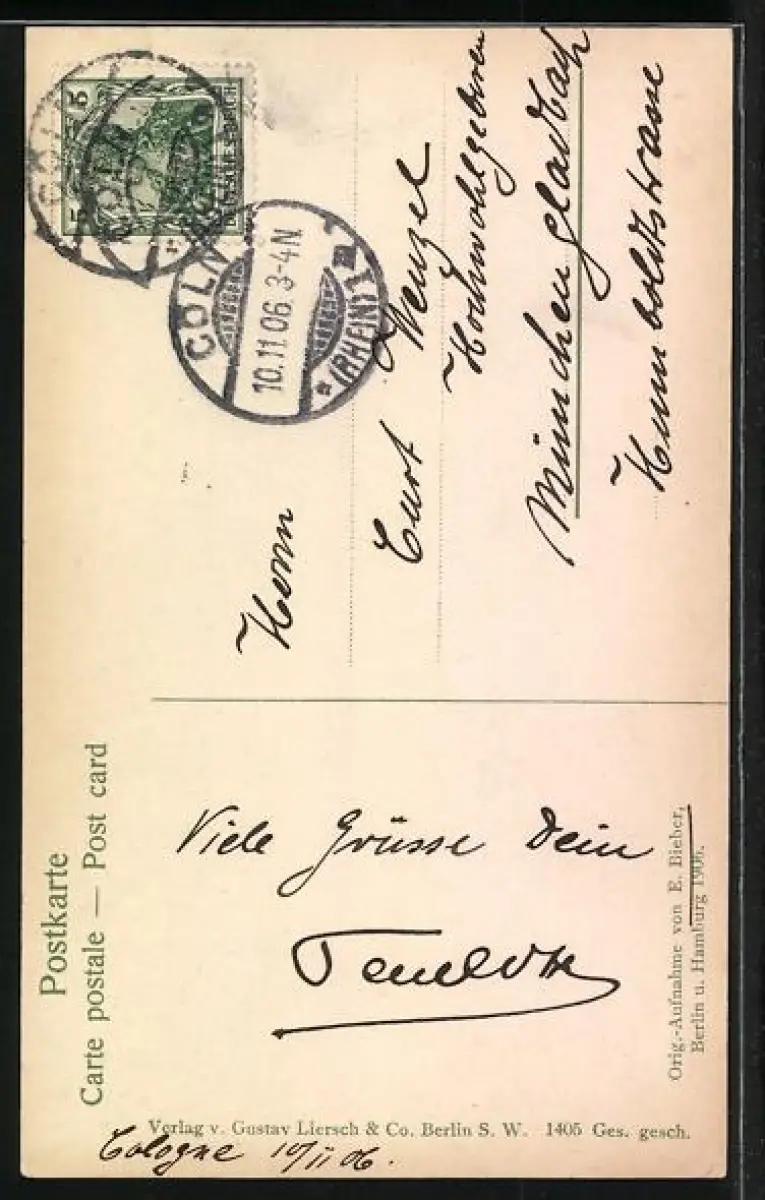 Postkarte
Carte postale — Post card
5 5
CÖLN
10.11.06. 3-4N
* (RHEIN) 1 m
Herrn
Curt Wenzel
Hochwohlgeboren
München gladbach
Humboldtstrasse
Viele Grüsse Dein
Orig.-Aufnahme von E. Bieber,
Berlin u. Hamburg 1906.
Verlag v. Gustav Liersch & Co. Berlin S. W. 1405 Ges. gesch.
Cologne 10/11 06.